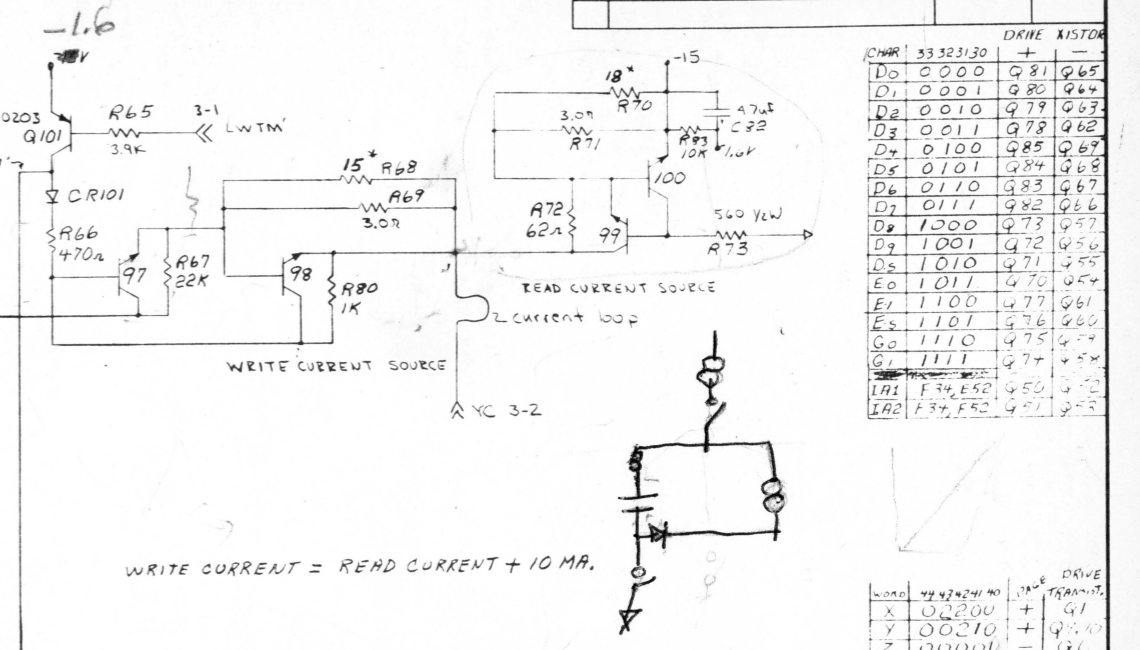 -1.6
V
0203
Q101
R65
3.9K
3-1
LWTM'
CR101
R66
470Ω
97
R67
22K
15* R68
R69
3.0Ω
98
R80
1K
WRITE CURRENT SOURCE
2 current loop
YC 3-2
-15
18*
R70
3.0Ω
R71
R93
10K
4.7uf
C32
1.6V
100
R72
62Ω
99
560 1/2W
R73
READ CURRENT SOURCE
WRITE CURRENT = READ CURRENT + 10 MA.
DRIVE XISTOR
CHAR 33323130 + -
D0 0000 Q81 Q65
D1 0001 Q80 Q64
D2 0010 Q79 Q63
D3 0011 Q78 Q62
D4 0100 Q85 Q69
D5 0101 Q84 Q68
D6 0110 Q83 Q67
D7 0111 Q82 Q66
D8 1000 Q73 Q57
D9 1001 Q72 Q56
DS 1010 Q71 Q55
E0 1011 Q70 Q54
E1 1100 Q77 Q61
ES 1101 Q76 Q60
G0 1110 Q75
G1 1111 Q74
IA1 F34, E52 Q50
IA2 F34, F52 Q51
DRIVE
WORD 4443424140 PAGE TRANSIST.
X 02200 + Q1
Y 00210 +